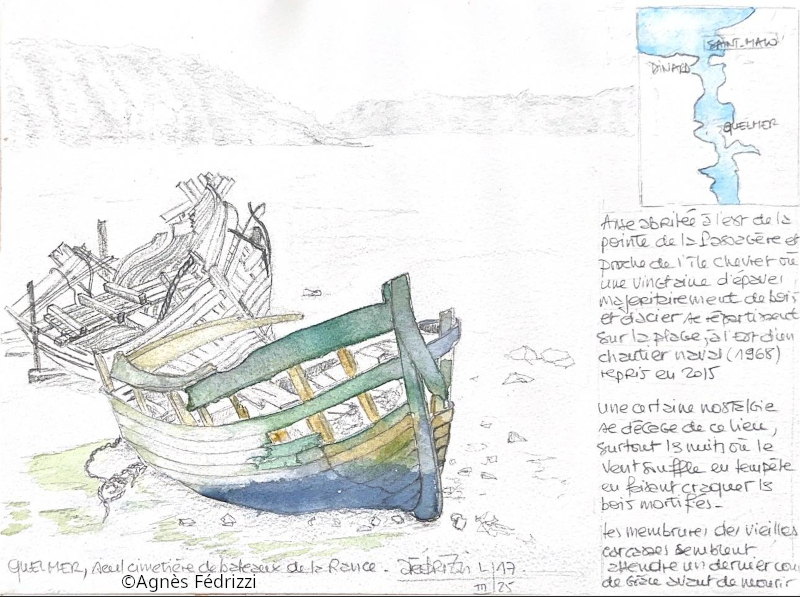 SAINT-MALO
DINARD
QUELMER
Anse abritée à l'est de la
pointe de la Passagère et
proche de l'île Chevret où
une vingtaine d'épaves
majoritairement de bois
et d'acier se répartissent
sur la plage, à l'est d'un
chantier naval (1968)
repris en 2015
Une certaine nostalgie
se dégage de ce lieu,
surtout la nuit où le
vent souffle en tempête
en faisant craquer les
bois mortifiés.
Les membrures des vieilles
carcasses semblent
attendre un dernier cou
de grâce avant de mourir
QUELMER, seul cimetière de bateaux de la Rance - 17
III/25
©Agnès Fédrizzi